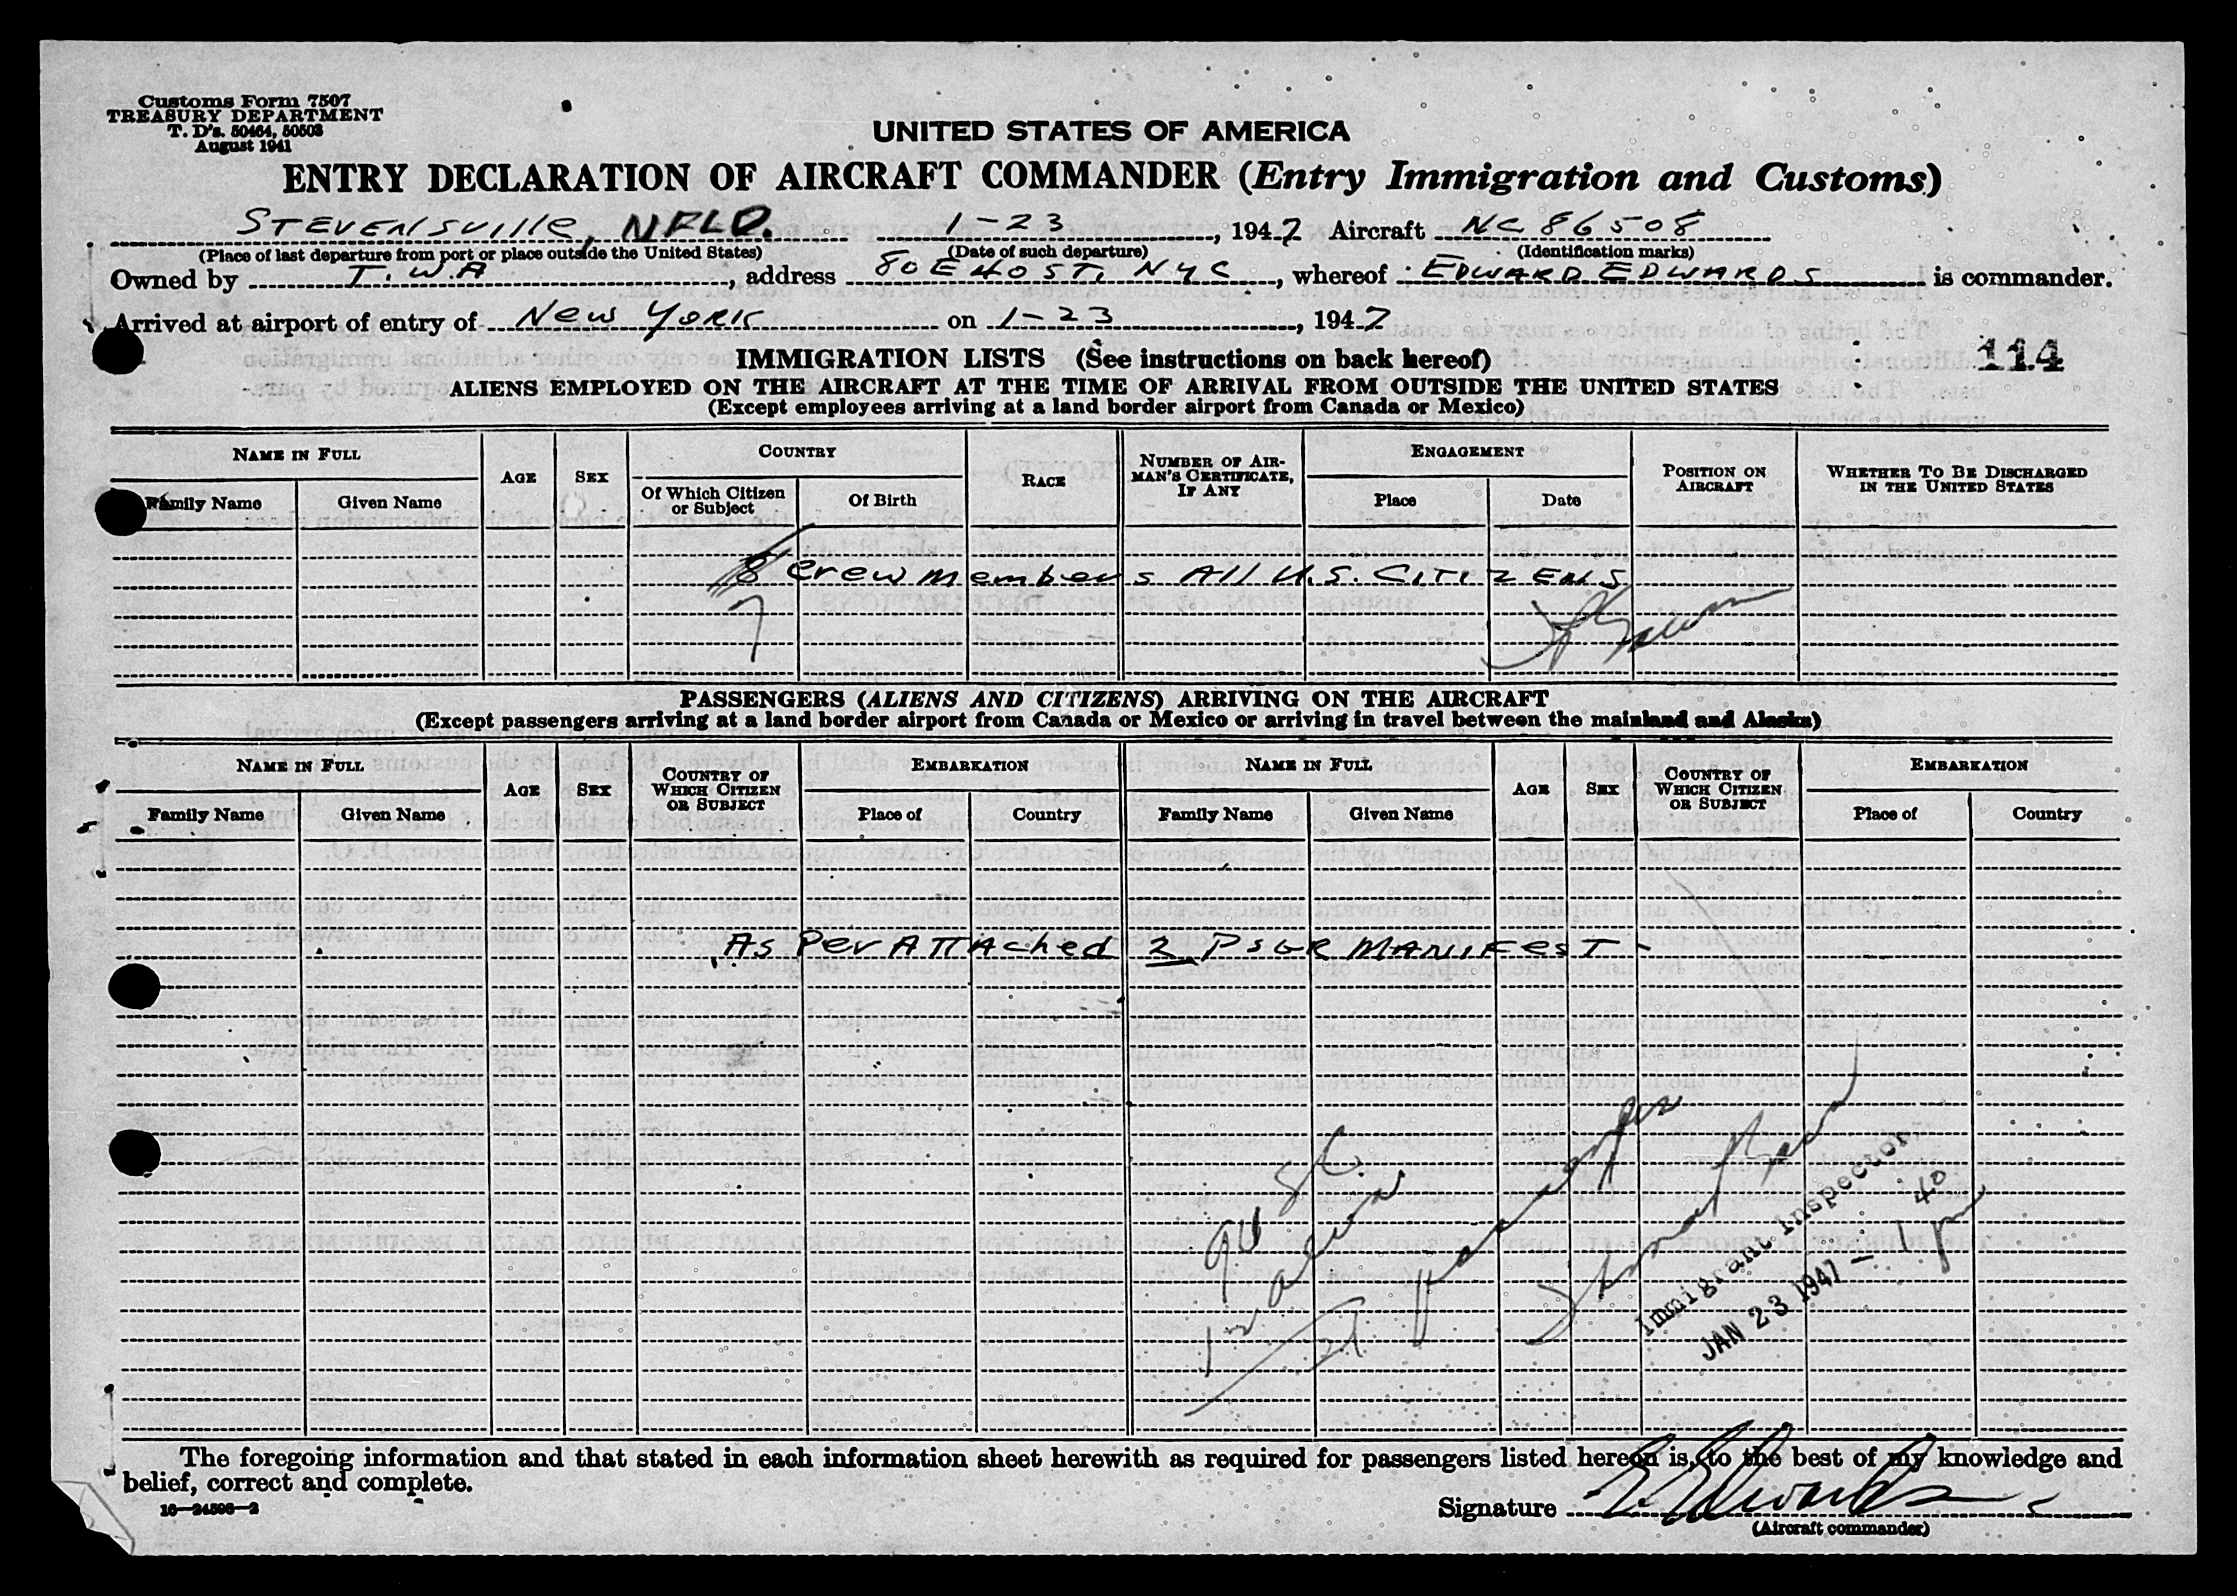 Customs Form 7507
TREASURY DEPARTMENT
T. D's. 50464, 50503
August 1941
UNITED STATES OF AMERICA
ENTRY DECLARATION OF AIRCRAFT COMMANDER (Entry Immigration and Customs)
STEVENSVILLE, NFLD. 1-23, 1947 Aircraft NC 86508
(Place of last departure from port or place outside the United States) (Date of such departure) (Identification marks)
Owned by T.W.A, address 80 E 40 ST. NYC, whereof EDWARD EDWARDS is commander.
Arrived at airport of entry of New York on 1-23, 1947
IMMIGRATION LISTS (See instructions on back hereof)
114
ALIENS EMPLOYED ON THE AIRCRAFT AT THE TIME OF ARRIVAL FROM OUTSIDE THE UNITED STATES
(Except employees arriving at a land border airport from Canada or Mexico)
NAME IN FULL AGE SEX COUNTRY RACE NUMBER OF AIRMAN'S CERTIFICATE, IF ANY ENGAGEMENT POSITION ON AIRCRAFT WHETHER TO BE DISCHARGED IN THE UNITED STATES
Family Name Given Name Of Which Citizen or Subject Of Birth Place Date
8 crew members All U.S. CITIZENS
7
PASSENGERS (ALIENS AND CITIZENS) ARRIVING ON THE AIRCRAFT
(Except passengers arriving at a land border airport from Canada or Mexico or arriving in travel between the mainland and Alaska)
NAME IN FULL AGE SEX COUNTRY OF WHICH CITIZEN OR SUBJECT EMBARKATION NAME IN FULL AGE SEX COUNTRY OF WHICH CITIZEN OR SUBJECT EMBARKATION
Family Name Given Name Place of Country Family Name Given Name Place of Country
As Per ATTAched 2 PSGR MANIFEST -
Immigrant Inspector
JAN 23 1947 - 1 40 pm
The foregoing information and that stated in each information sheet herewith as required for passengers listed hereon is, to the best of my knowledge and
belief, correct and complete.
16—24596-2
Signature E. Edwards
(Aircraft commander)